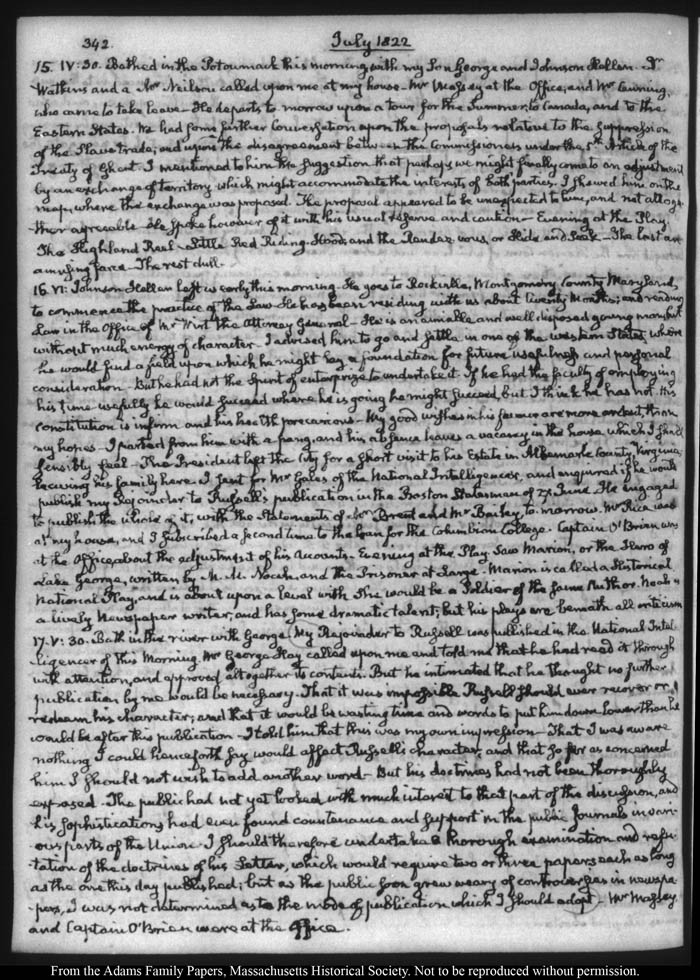 342.
July 1822
15. IV:30. Bathed in the Potowmack this morning with my Son George and Johnson Hellen. Dr
Watkins and a Mr Neilson called upon me at my house — Mr Massey at the Office, and Mr Canning,
who came to take leave — He departs to morrow upon a tour for the Summer, to Canada, and to the
Eastern States. We had some further Conversation upon the proposals relative to the suppression
of the Slave trade; and upon the disagreement between the Commissioners under the 5th Article of the
Treaty of Ghent. I mentioned to him the suggestion that perhaps we might finally come to an adjustment
by an exchange of territory which might accommodate the interests of both parties. I shewed him on the
map, where the exchange was proposed. The proposal appeared to be unexpected to him, and not altoge-
ther agreeable. He spoke however of it with his usual reserve and caution — Evening at the Play,
The Highland Reel — Little Red Riding-Hood, and the Rendezvous, or Hide and Seek — The last an
amusing farce — The rest dull.
16. VI: Johnson Hellen left us early this morning. He goes to Rockville, Montgomery County Maryland,
to commence the practice of the Law. He has been residing with us about twenty Months; and reading
Law in the Office of Mr Wirt the Attorney General — He is an amiable and well disposed young man, but
without much energy of character. I advised him to go and settle in one of the western States, where
he would find a field upon which he might lay a foundation for future usefulness and personal
consideration. But he had not the Spirit of enterprize to undertake it. If he had the faculty of employing
his time usefully he would succeed where he is going he might succeed, but I think he has not. His
constitution is infirm and his health precarious — My good wishes in his favour are more ardent, than
my hopes — I parted from him with a pang, and his absence leaves a vacancy in the house which I shall
sensibly feel — The President left the City for a short visit to his Estate in Albemarle County, Virginia,
leaving his family here. I sent for Mr Gales of the National Intelligencer, and enquired if he would
publish my Rejoinder to Russell's publication in the Boston Statesman of 27 June. He engaged
to publish the whole of it, with the Statements of Mr Brent and Mr Bailey, to-morrow. Mr Rice was
at my house, and I subscribed a second time to the loan for the Columbian College. Captain O'Brien was
at the Office, about the adjustment of his Accounts — Evening at the Play. Saw Marion, or the Hero of
Lake George, written by M. M. Noah, and the Prisoner at Large — Marion is called a Historical
National Play, and is about upon a level with She would be a Soldier of the same Author. Noah is
a lively Newspaper writer, and has some dramatic talent, but his plays are beneath all criticism
17. V:30. Bath in the river with George. My Rejoinder to Russell was published in the National Intel-
ligencer of this Morning. Mr George Hay called upon me and told me that he had read it through
with attention, and approved altogether its contents. But he intimated that he thought no further
publication by me would be necessary. That it was impossible Russell should ever recover or
redeem his character; and that it would be wasting time and words to put him down lower than he
would be after this publication — I told him that this was my own impression — That I was aware
nothing I could henceforth say would affect Russell's character, and that so far as concerned
him I should not wish to add another word — But his doctrines had not been thoroughly
exposed. The public had not yet looked with much interest to that part of the discussion, and
his sophistications had even found countenance and support in the public Journals in vari-
ous parts of the Union. I should therefore undertake a thorough examination and refu-
tation of the doctrines of his Letter, which would require two or three papers each as long
as the one this day published; but as the public soon grew weary of controversies in newspa-
pers, I was not determined as to the mode of publication which I should adopt — Mr Massey
and Captain O'Brien were at the Office.
From the Adams Family Papers, Massachusetts Historical Society. Not to be reproduced without permission.